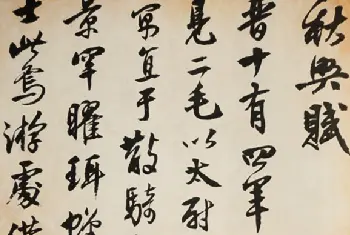 秋興賦
晉十有四年
見二毛以太尉
寓直于散騎
景罕曜珥蟬
士此焉游處